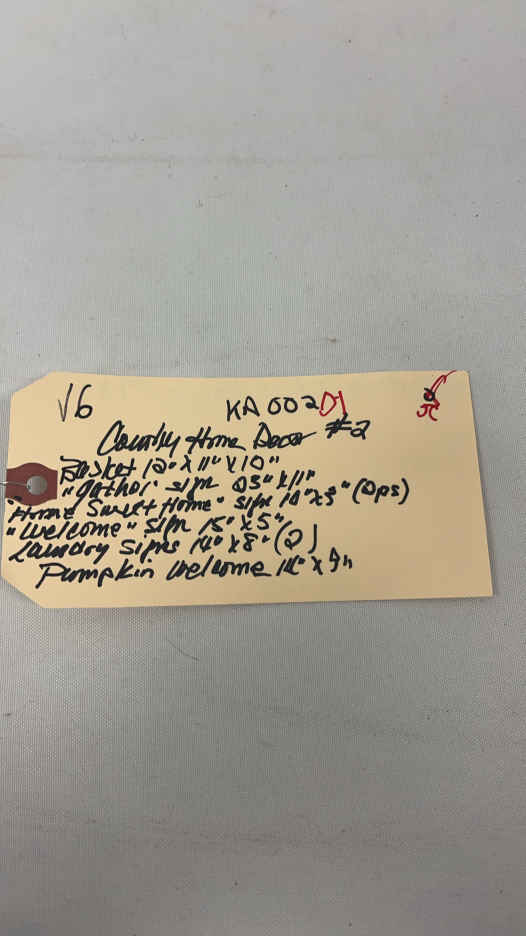 V6 KA 002 D1
Country Home Decor #2
Basket 12" x 11" x 10"
"gather" sign 25" x 11"
"Home Sweet Home" sign 10" x 5" (2ps)
"Welcome" sign 15" x 5"
Laundry Signs 14" x 8" (2)
Pumpkin Welcome x 9"